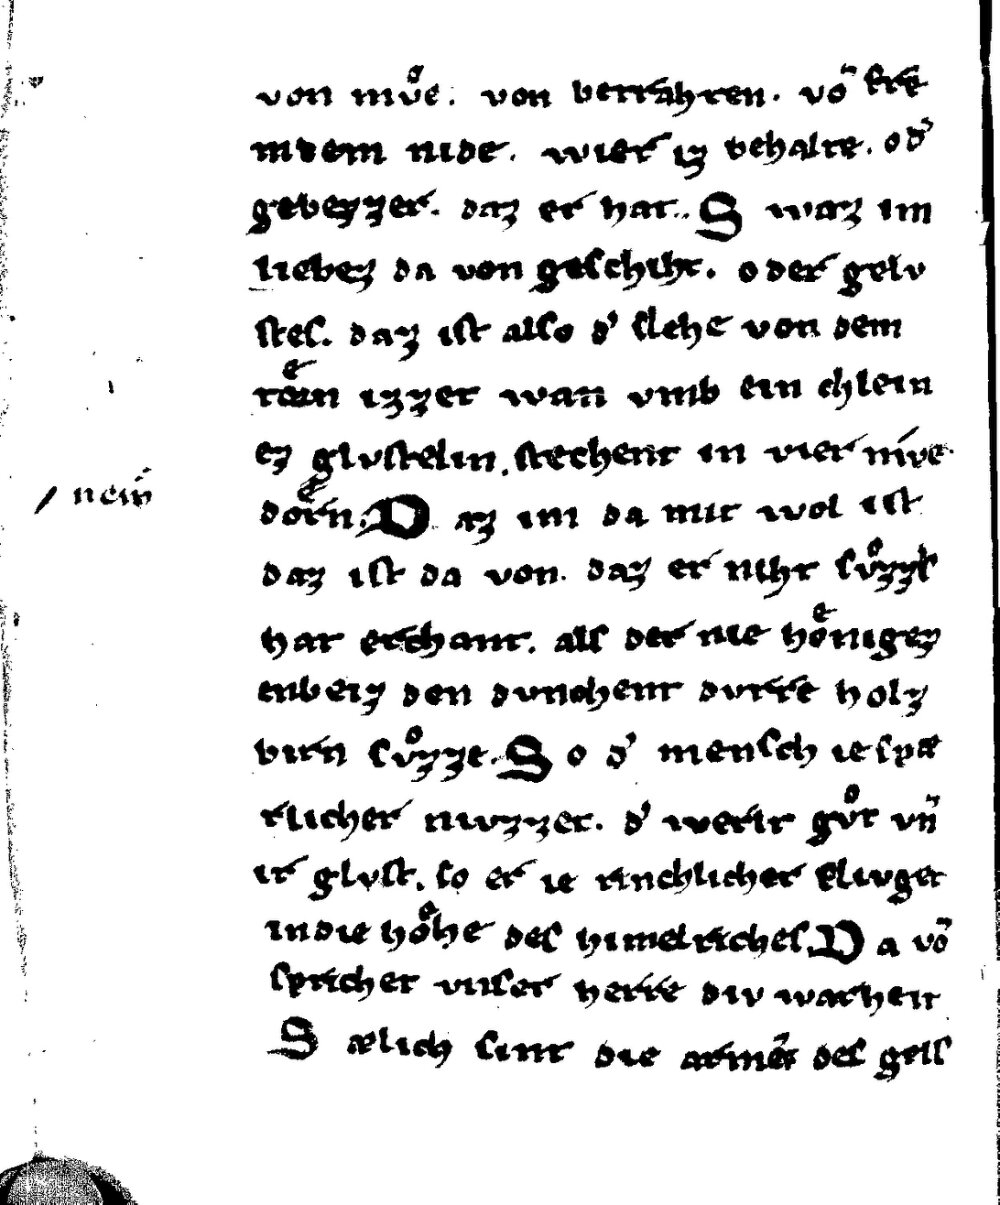 von mvͦe. von verrahren. võ fre
mdem nide. wier iz behalte. od'
gebezzer. daz er hat. S waz im
liebez da von geschiht. oder gelv
stes. daz ist also d' slehe von dem
rœͤin izzet wan vmb ein chlein
ez glvstelin, stechent in vier nīve
neiū
doͤrn. D az im da mit wol ist
daz ist da von. daz er niht svͦzzes
hat erchant. als der nie hoͤnigez
enbeiz den dvnchent dvrre holz
birn svͦzze. S o d' mensch ie spæ
rlicher nivzzet. d' werlt gvͦt vñ
ir glvst. so er ie rinchlicher flivget
in die hoͤhe des himelriches. D a võ
sprichet vnser herre div warheit
S ælich sint die armē des geis